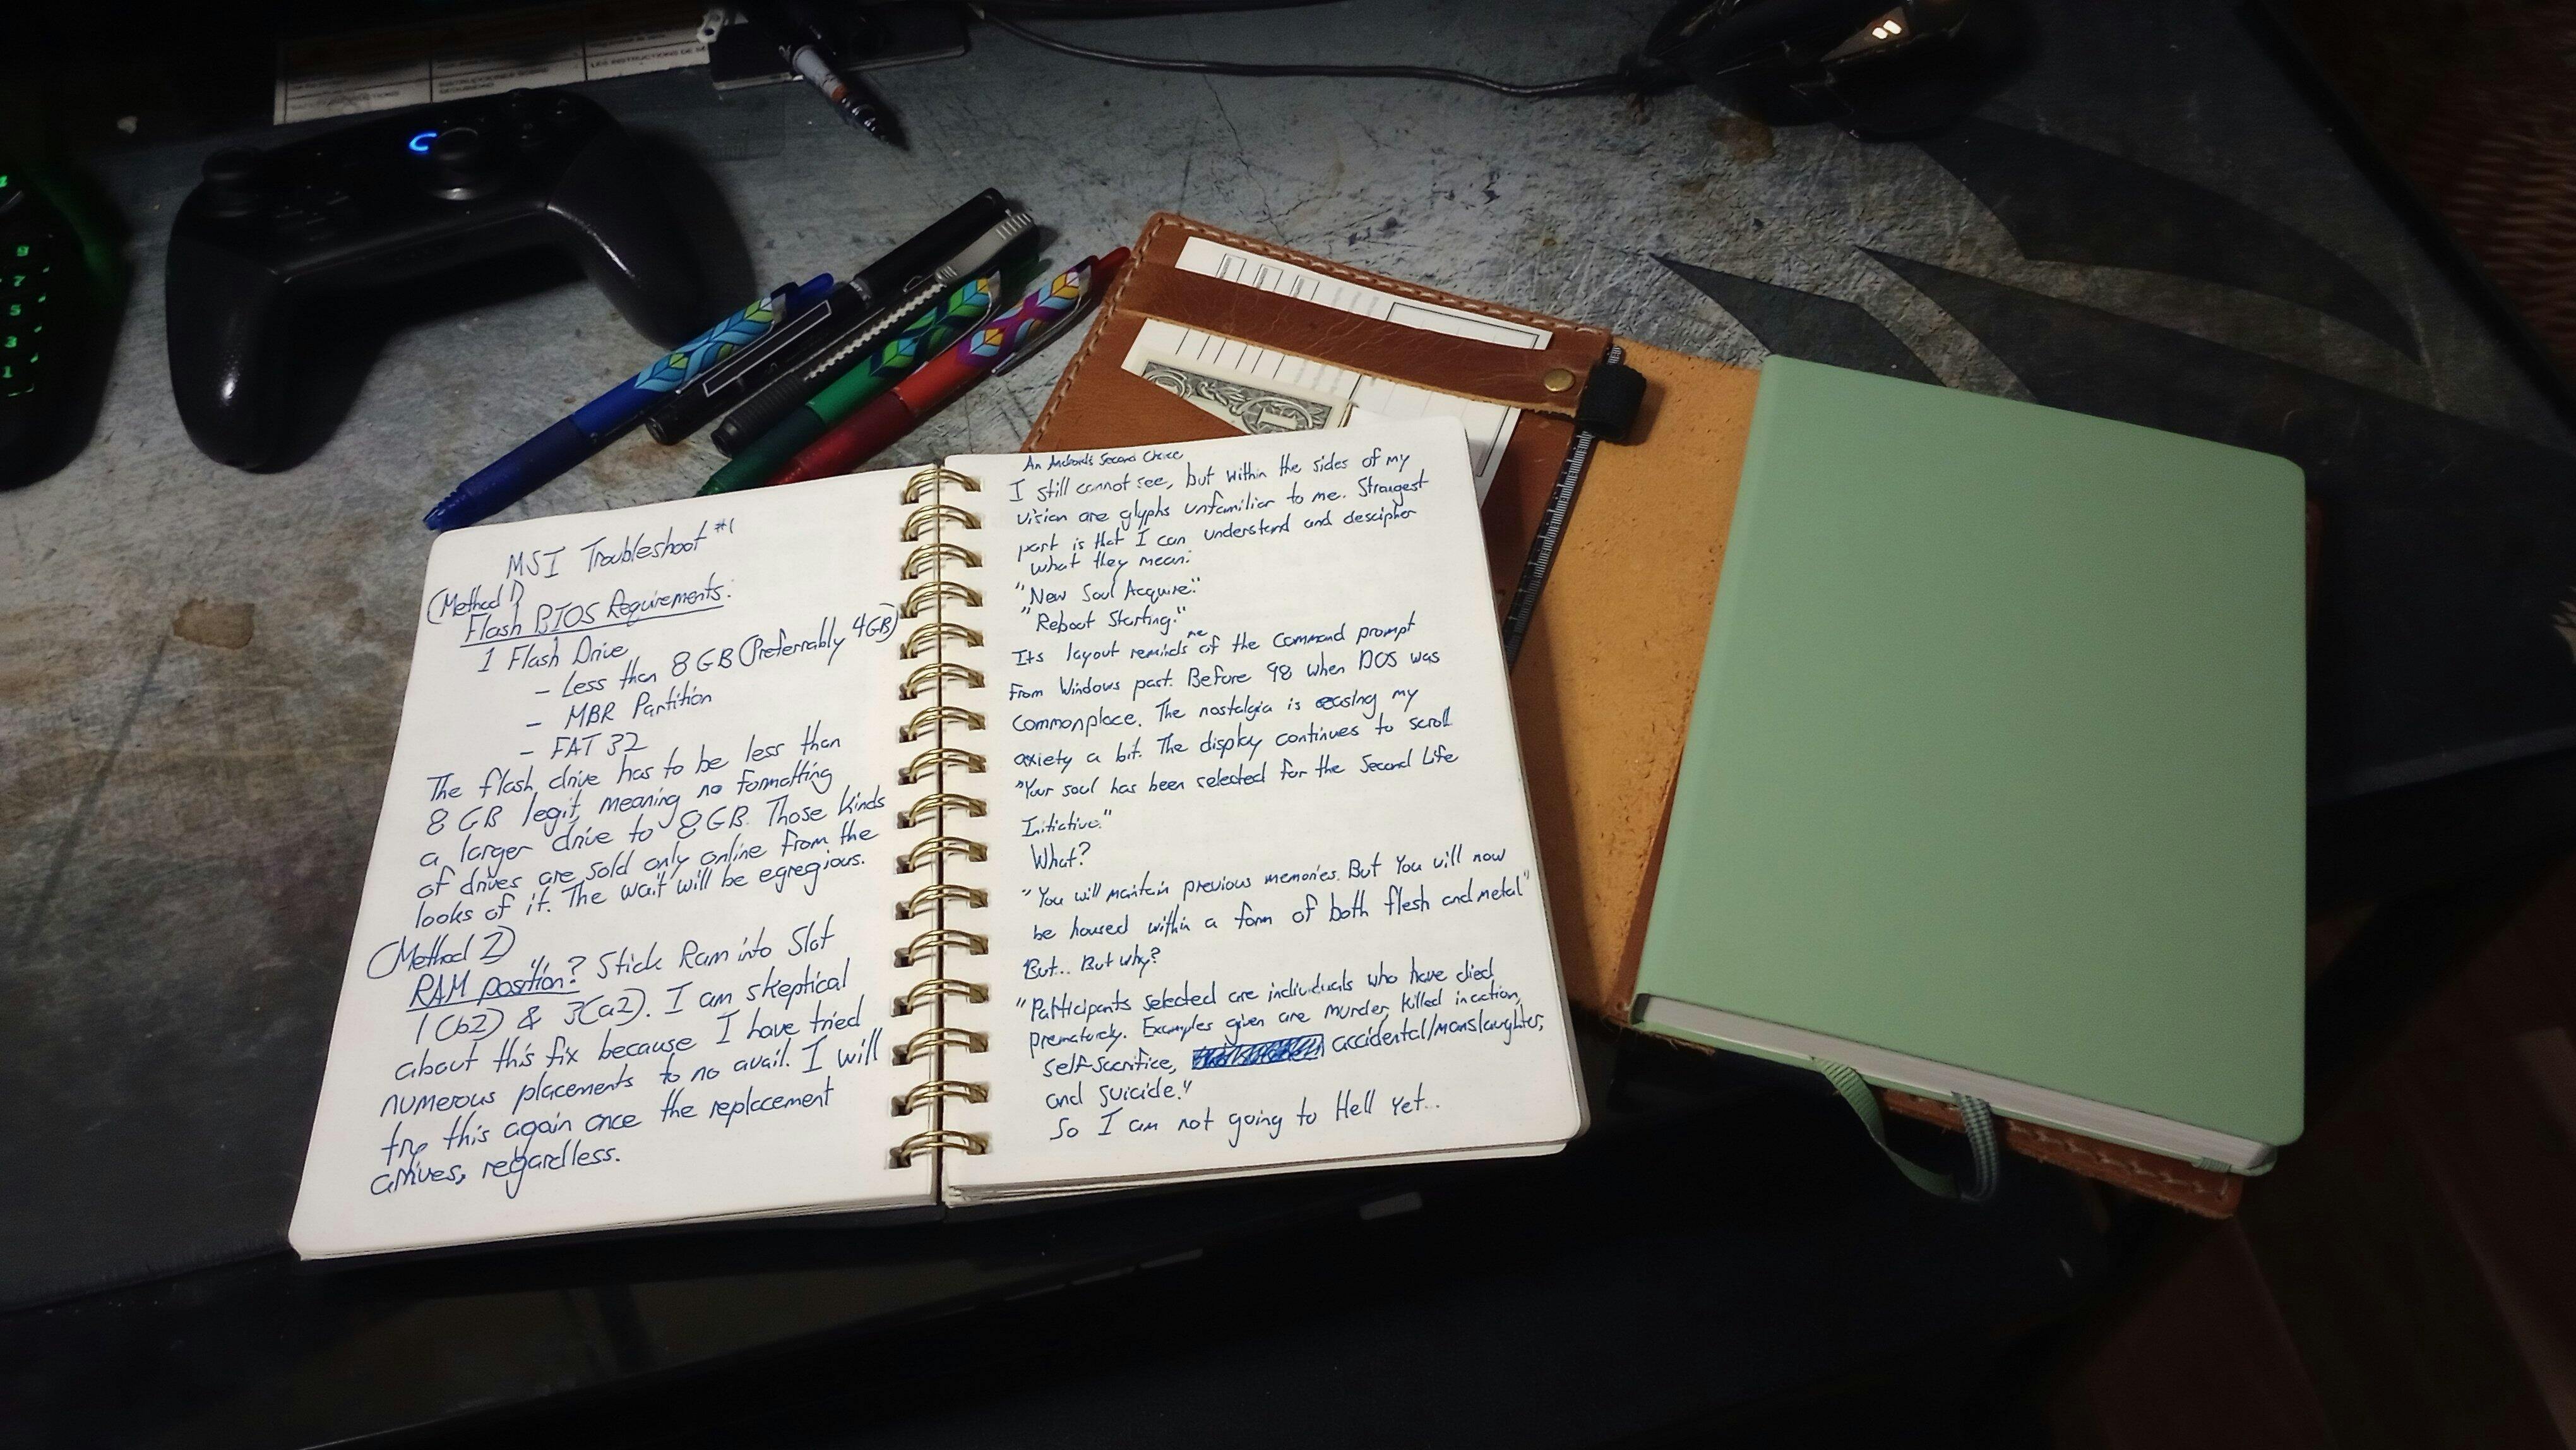 MSI Troubleshoot #1
(Method 1)
Flash BIOS Requirements:
1 Flash Drive
- Less than 8 GB (Preferrably 4GB)
- MBR Partition
- FAT 32
The flash drive has to be less than
8 GB legit, meaning no formatting
a larger drive to 8GB. Those kinds
of drives are sold only online from the
looks of it. The wait will be egregious.
(Method 2)
RAM position? Stick Ram into Slot
1(b2) & 3(a2). I am skeptical
about this fix because I have tried
numerous placements to no avail. I will
try this again once the replacement
arrives, regardless.
An Android's Second Choice
I still cannot see, but within the sides of my
vision are glyphs unfamiliar to me. Strangest
part is that I can understand and descipher
what they mean:
"New Soul Acquire."
"Reboot Starting."
Its layout reminds me of the Command prompt
from Windows past. Before 98 when DOS was
commonplace. The nostalgia is easing my
axiety a bit. The display continues to scroll
"Your soul has been selected for the Second Life
Initiative."
What?
"You will maintain previous memories. But You will now
be housed within a form of both flesh and metal"
But... But why?
"Participants selected are individuals who have died
prematurely. Examples given are murder, killed in action,
self-sacrifice, accidental/manslaughter,
and suicide."
So I am not going to Hell yet...
9
7
5
3
1